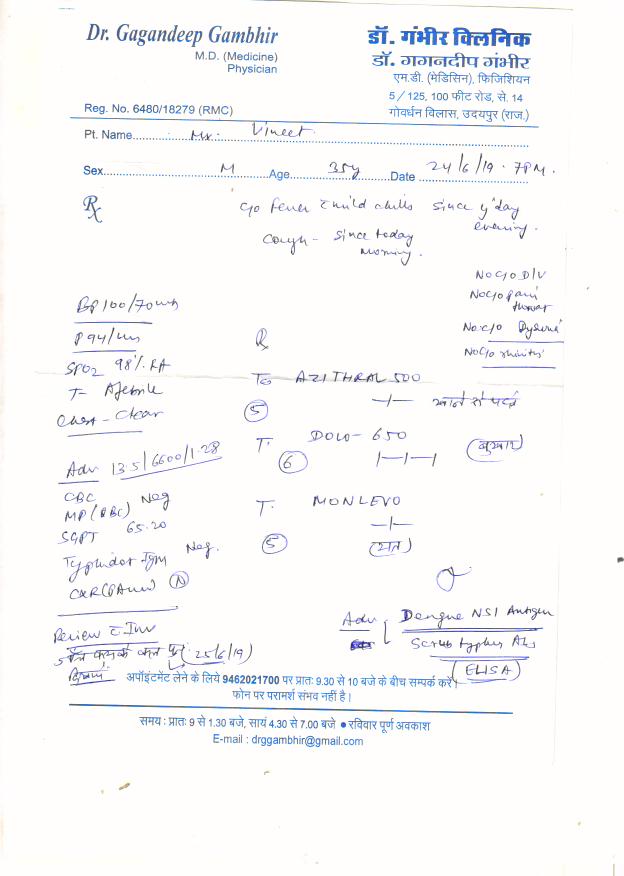 Dr. Gagandeep Gambhir
M.D. (Medicine)
Physician
Reg. No. 6480/18279 (RMC)
डॉ. गंभीर क्लिनिक
डॉ. गगनदीप गंभीर
एम.डी. (मेडिसिन), फिजिशियन
5/125, 100 फीट रोड, से. 14
गोवर्धन विलास, उदयपुर (राज.)
Pt. Name Mr. Vineet
Sex M Age 35y Date 24/6/19 . 7PM.
Rx
c/o Fever c mild chills since y'day
evening.
Cough - Since today
morning.
No c/o D/V
No c/o pain
throat
No c/o
No c/o rhinitis
BP 100/70
P 94/
SPO2 98% RA
T- Afebrile
Chest - Clear
Adv 13.5/6600/1.28
CBC
MP (PBC) Neg
SGPT 65.20
Typhidot IgM Neg.
CXR (PA view) N
Review c Inv
25/6/19)
दिखायें
Rx
T. AZITHRAL 500
5 -/- खाने से पहले
T. DOLO - 650
6 /-/-/ (बुखार)
T. MONLEVO
5 -/-
(रात)
Adv Dengue NS1 Antigen
Scrub typhus
(ELISA)
अपॉइंटमेंट लेने के लिये 9462021700 पर प्रातः 9.30 से 10 बजे के बीच सम्पर्क करें।
फोन पर परामर्श संभव नहीं है।
समय : प्रातः 9 से 1.30 बजे, सायं 4.30 से 7.00 बजे ● रविवार पूर्ण अवकाश
E-mail : drggambhir@gmail.com